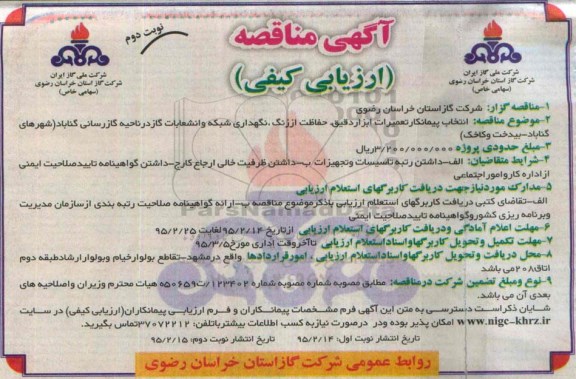 آگهی مناقصه
نوبت دوم
(ارزیابی کیفی)
شرکت ملی گاز ایران
شرکت گاز استان خراسان رضوی
(سهامی خاص)
شرکت ملی گاز ایران
شرکت گاز استان خراسان رضوی
(سهامی خاص)
۱-مناقصه گزار: شرکت گاز استان خراسان رضوی
۲-موضوع مناقصه: انتخاب پیمانکار تعمیرات ابزاردقیق، حفاظت اززنگ، نگهداری شبکه وانشعابات گازدرناحیه گازرسانی گناباد(شهرهای
گناباد-بیدخت وکاخک)
۳-مبلغ حدودی پروژه ۳/۲۰۰/۰۰۰/۰۰۰ریال
۴-شرایط متقاضیان: الف-داشتن رتبه تاسیسات وتجهیزات ب-داشتن ظرفیت خالی ارجاع کارج-داشتن گواهینامه تاییدصلاحیت ایمنی
ازاداره کارواموراجتماعی
۵-مدارک موردنیازجهت دریافت کاربرگهای استعلام ارزیابی
الف-تقاضای کتبی دریافت کاربرگهای استعلام ارزیابی باذکرموضوع مناقصه ب-ارائه گواهینامه صلاحیت رتبه بندی ازسازمان مدیریت
وبرنامه ریزی کشوروگواهینامه تاییدصلاحیت ایمنی
۶-مهلت اعلام آمادگی ودریافت کاربرگهای استعلام ارزیابی ازتاریخ ۹۵/۲/۱۴لغایت ۹۵/۲/۲۵
۷-مهلت تکمیل و تحویل کاربرگهاواسناداستعلام ارزیابی تاآخروقت اداری مورخ۹۵/۳/۵
۸-محل دریافت وتحویل کاربرگهاواسناداستعلام ارزیابی ، امورقراردادها واقع درمشهد-تقاطع بولوارخیام وبولوارارشادطبقه دوم
اتاق۲۰۸می باشد
۹-نوع ومبلغ تضمین شرکت درمناقصه: مطابق مصوبه شماره مصوبه شماره ۱۲۳۴۰۲/ت۵۰۶۵۹ه هیات محترم وزیران واصلاحیه های
بعدی آن می باشد.
شایان ذکراست دسترسی به متن این آگهی فرم مشخصات پیمانکاران و فرم ارزیابی پیمانکاران(ارزیابی کیفی) در سایت
www.nigc-khrz.ir امکان پذیر بوده ودر درصورت نیازبه کسب اطلاعات بیشترباتلفن: ۳۷۰۷۲۲۱۲تماس بگیرید.
تاریخ انتشار نوبت اول: ۹۵/۲/۱۴ تاریخ انتشار نوبت دوم: ۹۵/۲/۱۵
روابط عمومی شرکت گاز استان خراسان رضوی